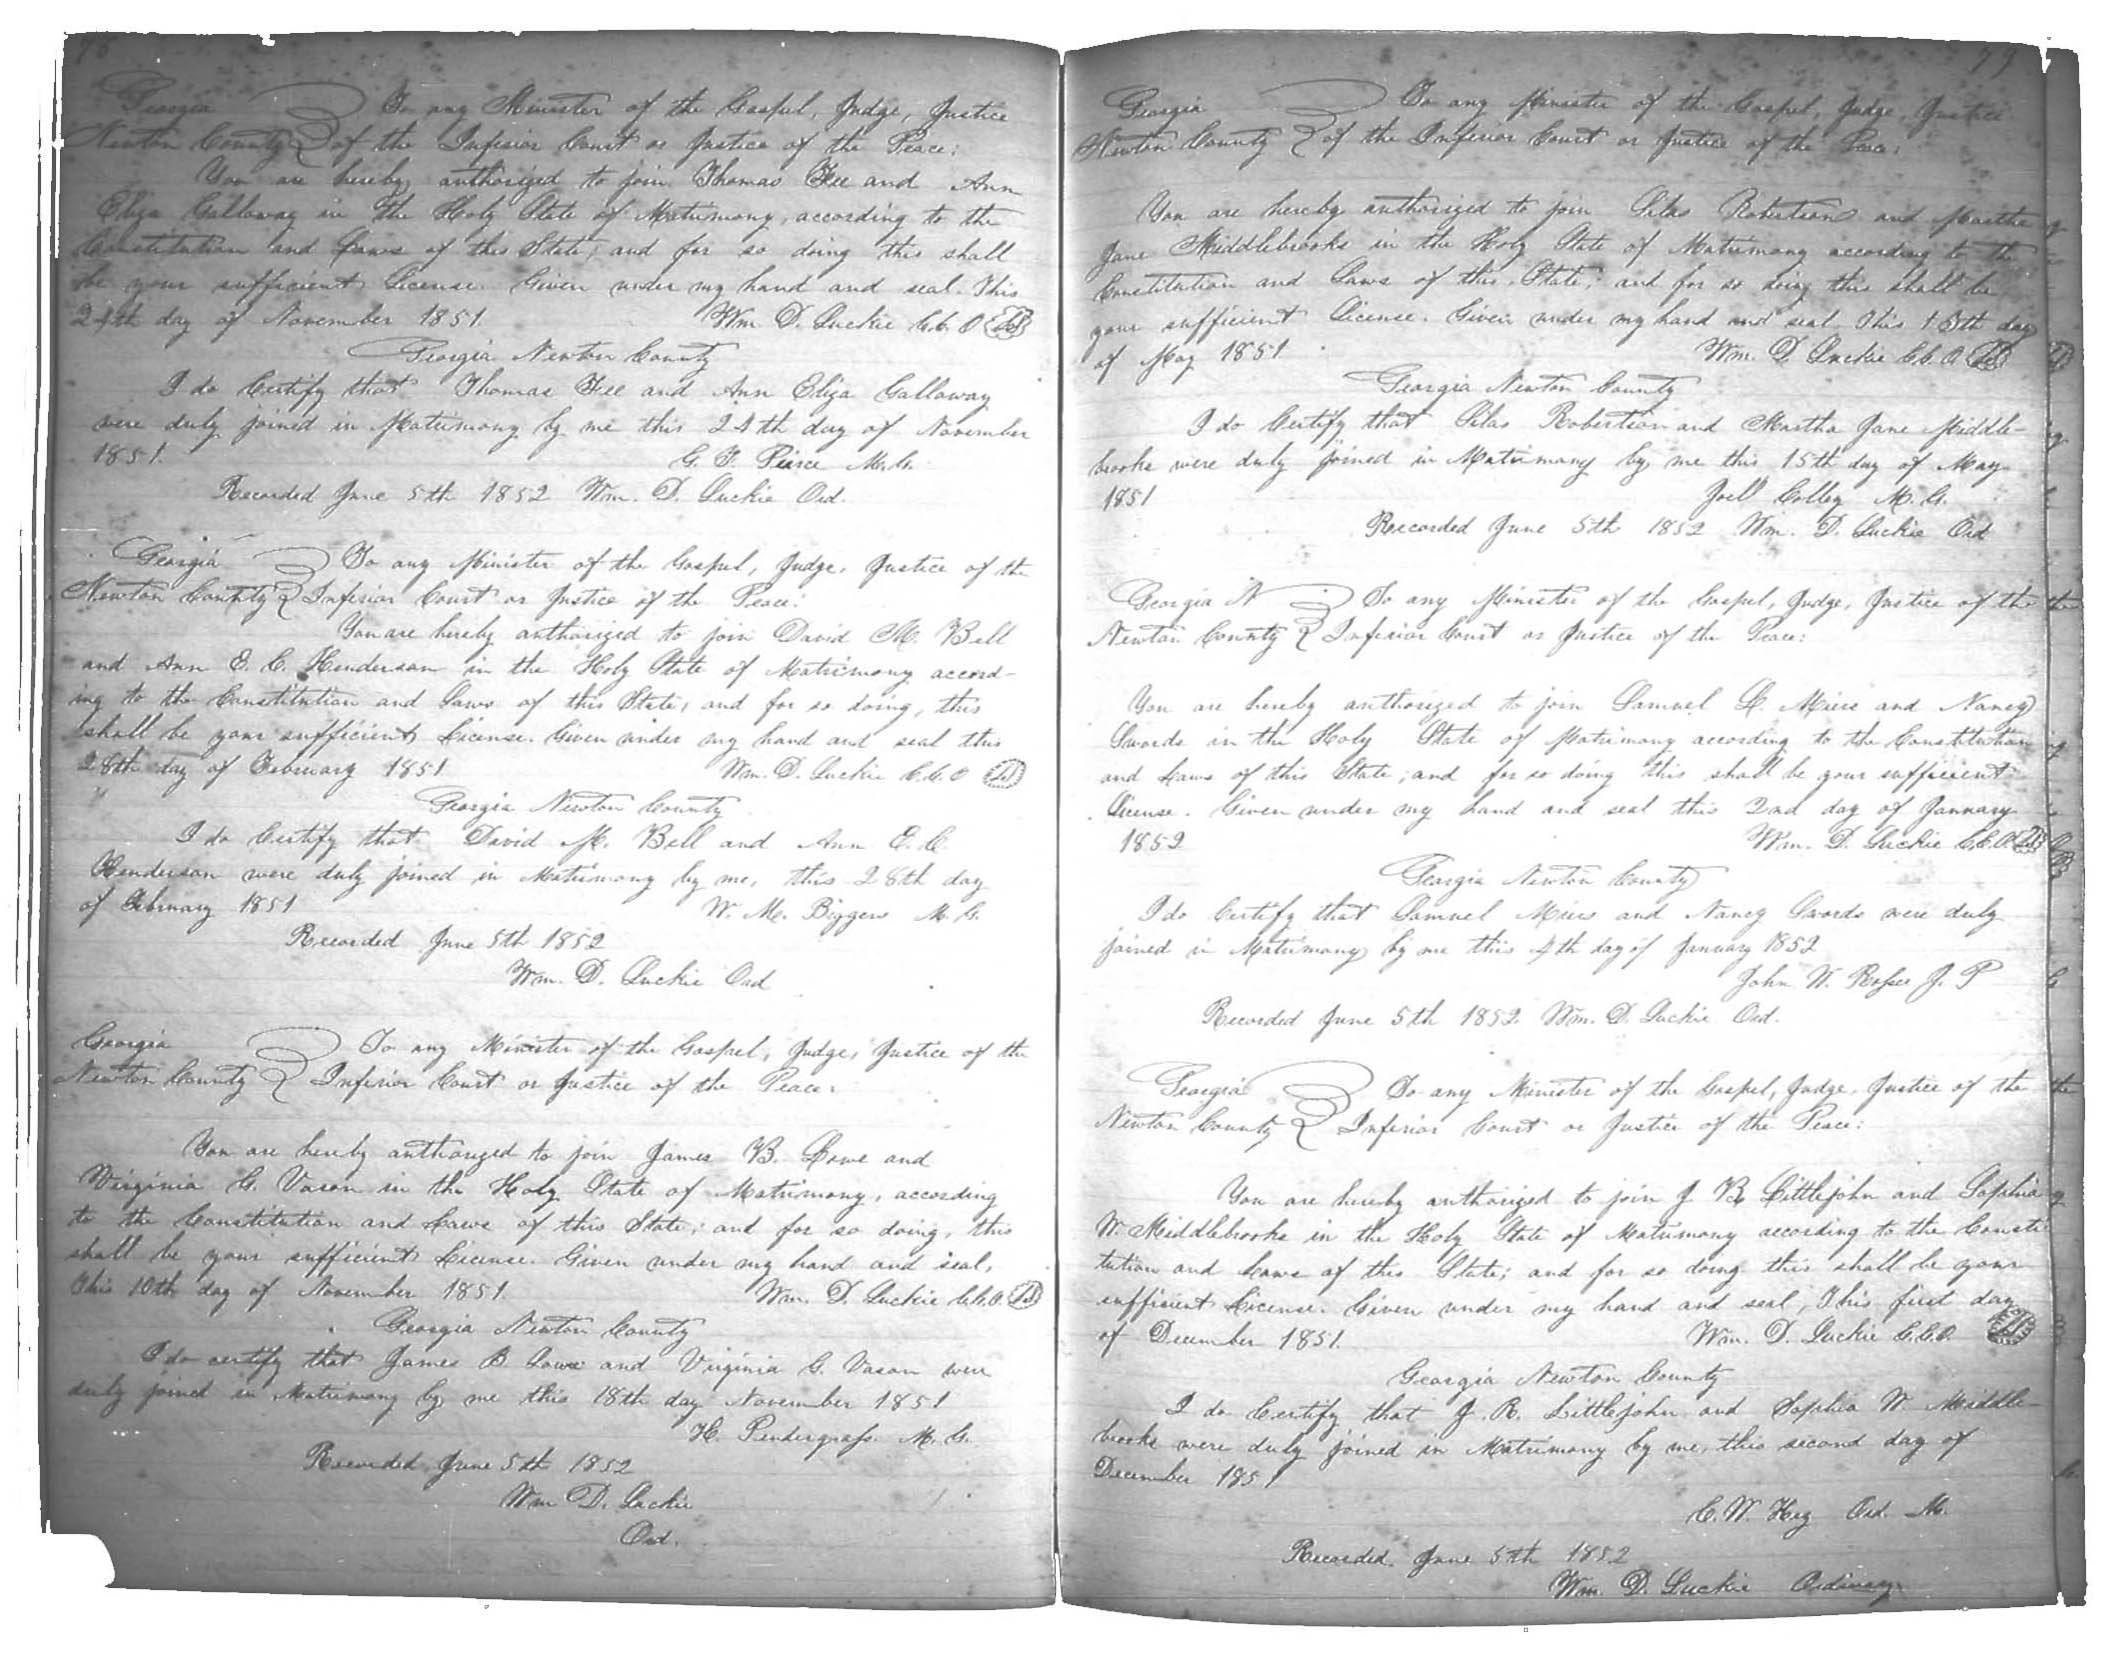 78
Georgia To any Minister of the Gospel, Judge, Justice
Newton County of the Inferior Court or Justice of the Peace:
You are hereby authorized to join Thomas Fee and Ann
Eliza Gallaway in the Holy State of Matrimony, according to the
Constitution and Laws of this State; and for so doing this shall
be your sufficient License. Given under my hand and seal. This
24th day of November 1851. Wm D. Luckie C.C.O LS
Georgia Newton County
I do Certify that Thomas Fee and Ann Eliza Gallaway
were duly joined in Matrimony by me this 24th day of November
1851. G. F. Peirce M.G.
Recorded June 5th 1852 Wm. D. Luckie Ord.
Georgia To any Minister of the Gospel, Judge, Justice of the
Newton County Inferior Court or Justice of the Peace:
You are hereby authorized to join David M. Bell
and Ann E. C. Henderson in the Holy State of Matrimony accord-
ing to the Constitution and Laws of this State, and for so doing, this
shall be your sufficient License. Given under my hand and seal this
28th day of February 1851 Wm. D. Luckie C.C.O LS
Georgia Newton County
I do Certify that David M. Bell and Ann E. C.
Henderson were duly joined in Matrimony by me, this 28th day
of February 1851 W. M. Biggers M.G.
Recorded June 5th 1852
Wm. D. Luckie Ord
Georgia To any Minister of the Gospel, Judge, Justice of the
Newton County Inferior Court or Justice of the Peace:
You are hereby authorized to join James B. Lowe and
Virginia G. Vason in the Holy State of Matrimony, according
to the Constitution and Laws of this State; and for so doing, this
shall be your sufficient License. Given under my hand and seal,
This 10th day of November 1851. Wm. D. Luckie C.C.O. LS
Georgia Newton County
I do certify that James B. Lowe and Virginia G. Vason were
duly joined in Matrimony by me this 18th day November 1851
H. Pendergrass. M.G.
Recorded June 5th 1852
Wm D. Luckie
Ord.
79
Georgia To any Minister of the Gospel, Judge, Justice
Newton County of the Inferior Court or Justice of the Peace:
You are hereby authorized to join Silas Robertson and Martha
Jane Middlebrooks in the Holy State of Matrimony according to the
Constitution and Laws of this State; and for so doing this shall be
your sufficient License. Given under my hand and seal This 13th day
of May 1851. Wm. D. Luckie C.C.O. LS
Georgia Newton County
I do Certify that Silas Robertson and Martha Jane Middle-
brooks were duly joined in Matrimony by me this 15th day of May
1851 Joel Colley M.G.
Recorded June 5th 1852 Wm. D. Luckie Ord
Georgia N To any Minister of the Gospel, Judge, Justice of the
Newton County Inferior Court or Justice of the Peace:
You are hereby authorized to join Samuel D. Miers and Nancy
Swords in the Holy State of Matrimony according to the Constitution
and Laws of this State; and for so doing this shall be your sufficient
License. Given under my hand and seal this 2nd day of January
1852 Wm. D. Luckie C.C.O. LS
Georgia Newton County
I do Certify that Samuel Miers and Nancy Swords were duly
joined in Matrimony by me this 4th day of January 1852
John W. Rosser J. P
Recorded June 5th 1852. Wm. D. Luckie Ord.
Georgia To any Minister of the Gospel, Judge, Justice of the
Newton County Inferior Court or Justice of the Peace:
You are hereby authorized to join J B Littlejohn and Sophia
W. Middlebrooks in the Holy State of Matrimony according to the Consti
tution and Laws of this State; and for so doing this shall be your
sufficient License. Given under my hand and seal, This first day
of December 1851. Wm. D. Luckie C.C.O. LS
Georgia Newton County
I do Certify that J. R. Littlejohn and Sophia W. Middle-
brooks were duly joined in Matrimony by me, this second day of
December 1851
C. W. Key Ord. M.
Recorded June 5th 1852
Wm. D. Luckie Ordinary